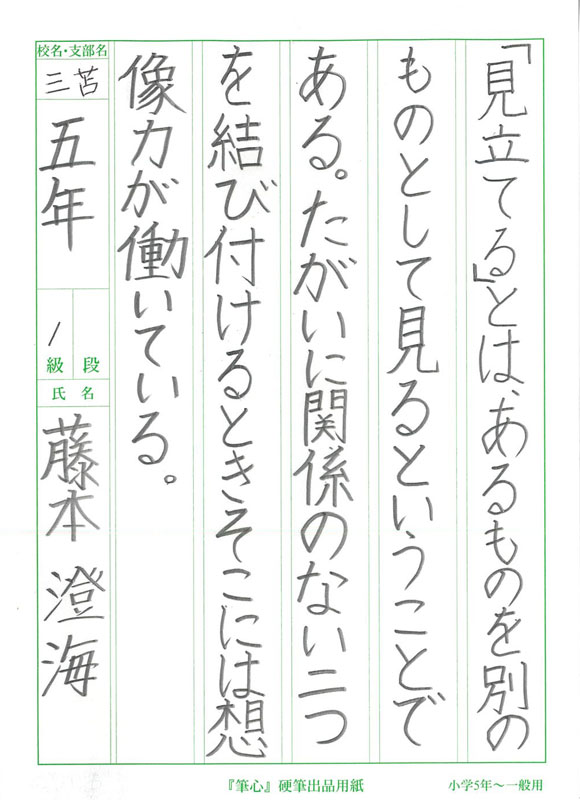 「見立てる」とは、あるものを別の
ものとして見るということで
ある。たがいに関係のない二つ
を結び付けるときそこには想
像力が働いている。
校名・支部名
三苫
五年
段
級
1
氏名
藤本 澄海
『筆心』硬筆出品用紙
小学5年～一般用